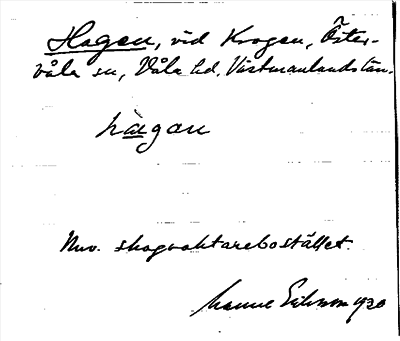 Hagen, vid Krogen, Öster-
våla sn, Våla hd, Västmanlands län.
hagan
Nuv. skogvaktarebostället.
Manne Eriksson 1930